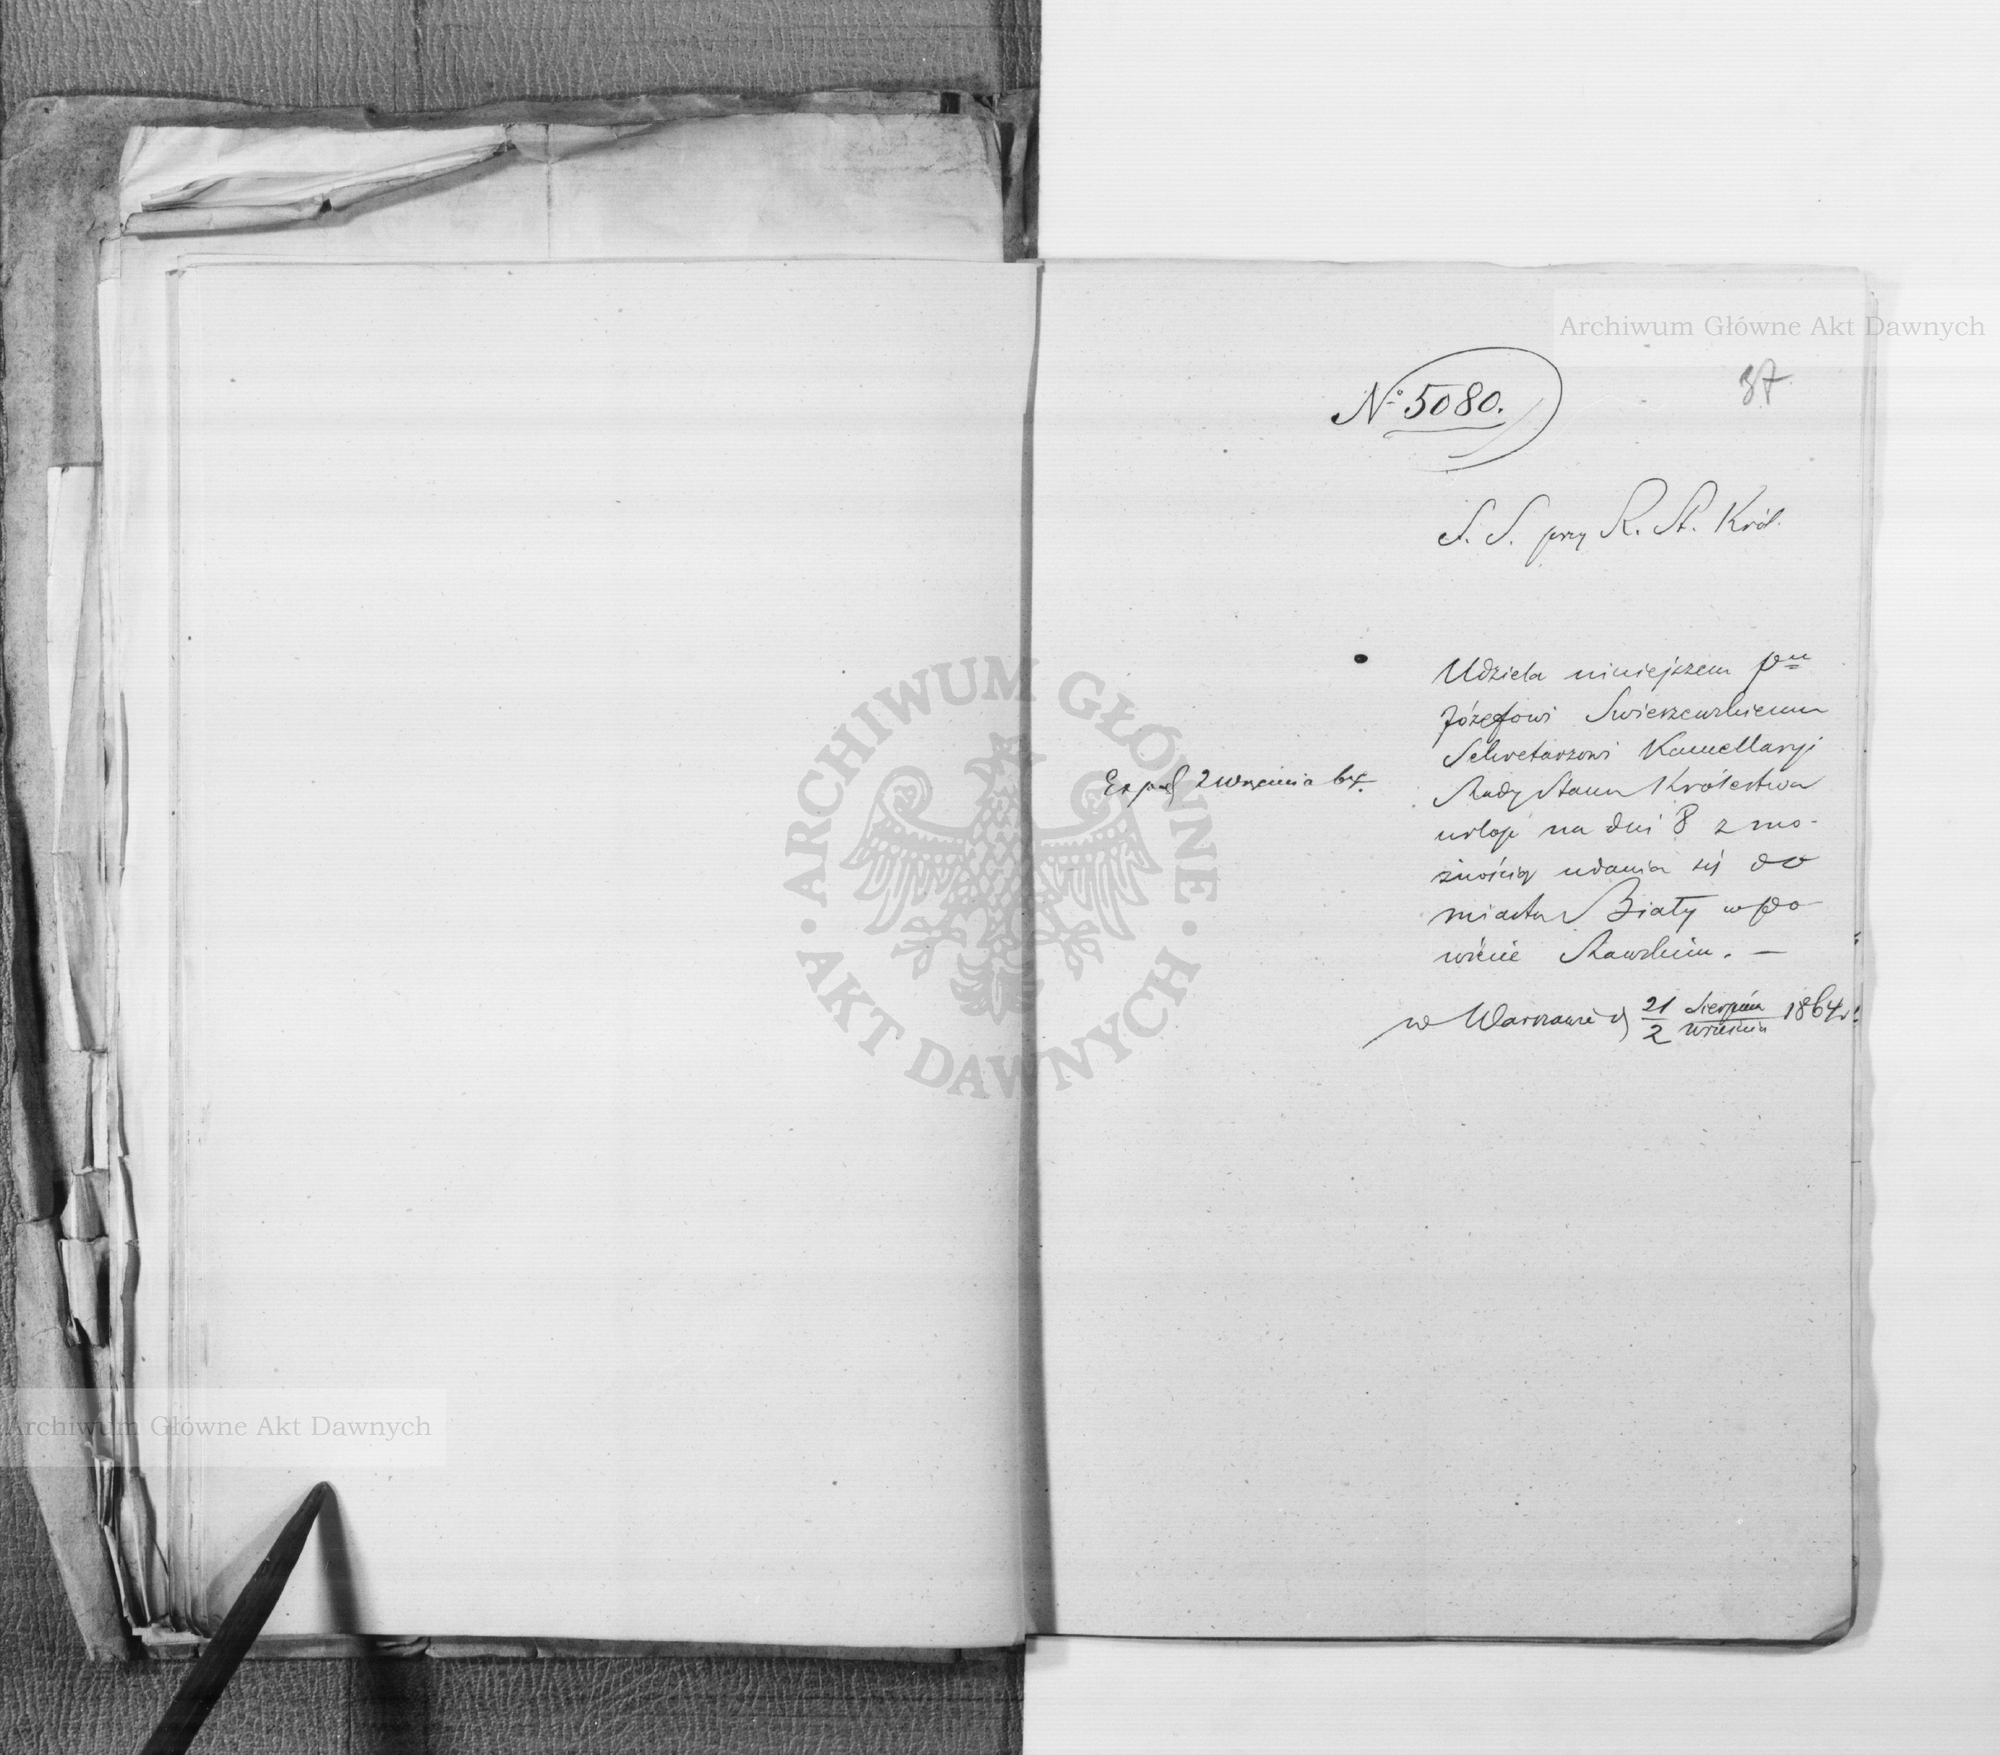 Archiwum Główne Akt Dawnych
37
No 5080.
S. S. przy R. St. Król.
Udziela niniejszem Pnu
Józefowi Swierzewskiemu
Sekretarzowi Kancellaryi
Rady Stanu Królestwa
urlop na dni 8 z mo-
żnością udania się do
miasta Biały w Po
wiecie Rawskim. —
Exped 2 Września 64.
w Warszawie d 21 Sierpnia / 2 Września 1864 r.
ARCHIWUM GŁÓWNE · AKT DAWNYCH ·
Archiwum Główne Akt Dawnych